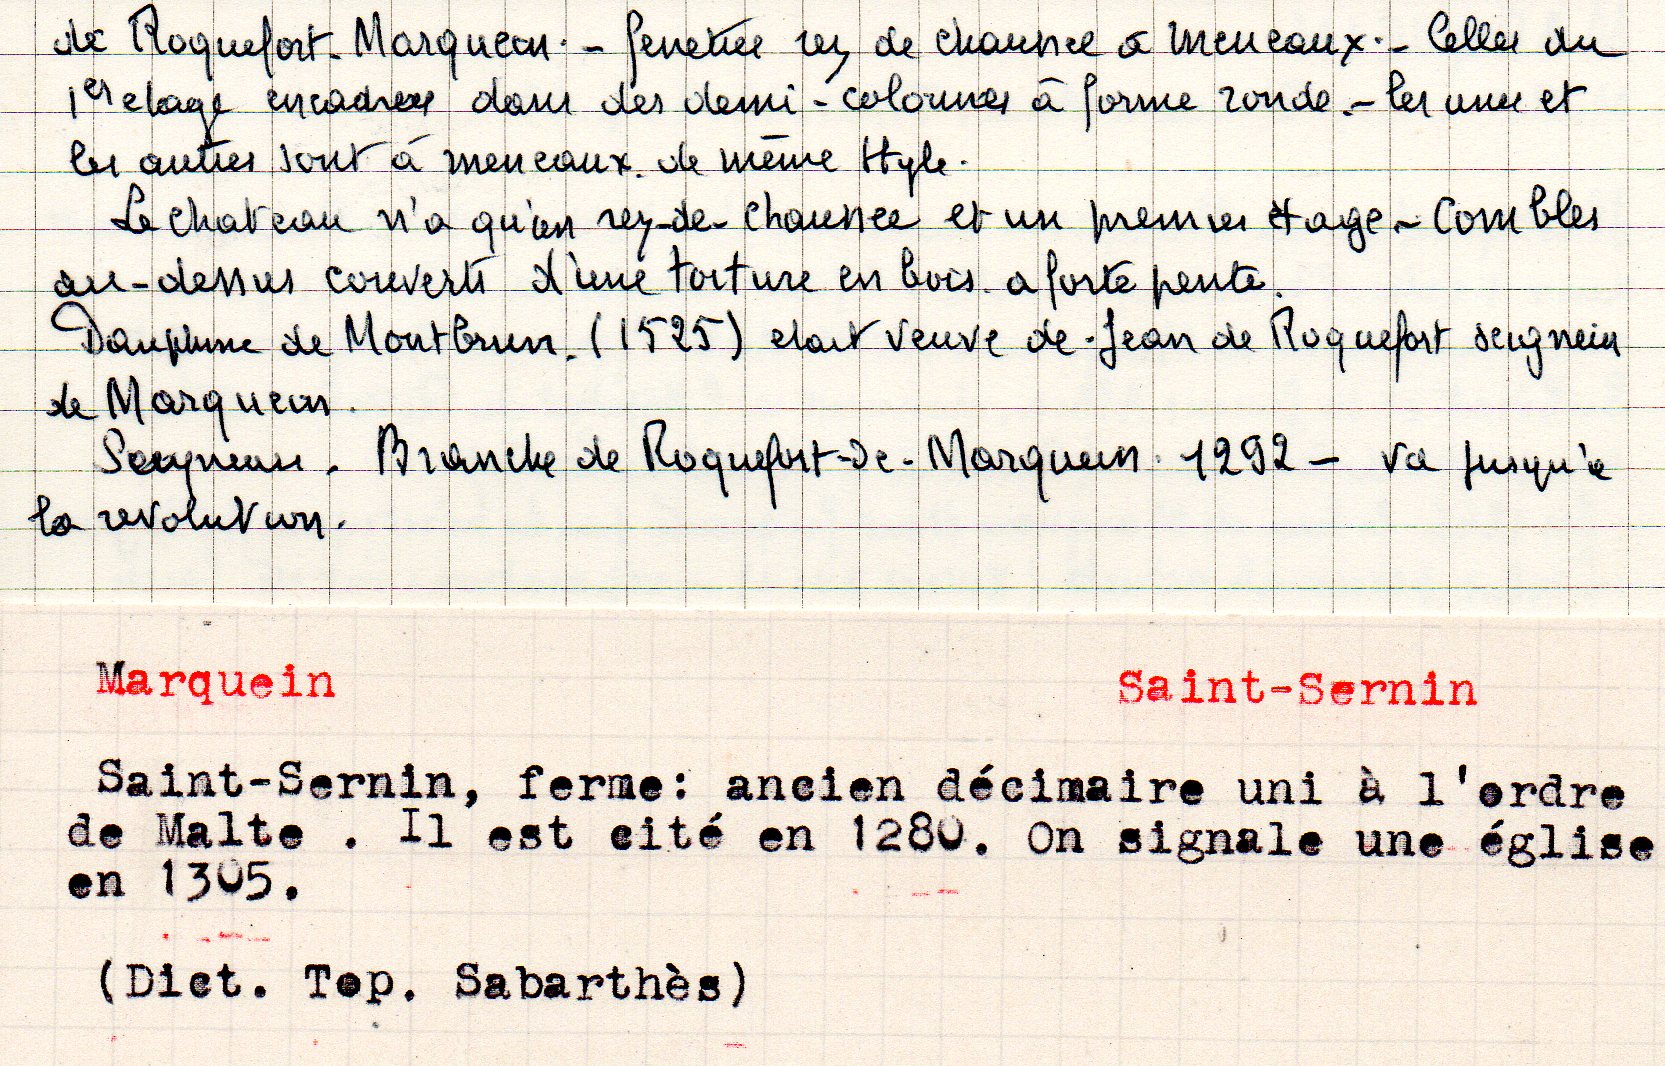 de Roquefort-Marquein. - fenetres rez de chaussee a meneaux. - Celles du
1er etage encadrees dans des demi-colonnes à forme ronde - les unes et
les autres sont à meneaux de même style.
Le chateau n'a qu'un rez-de-chaussee et un premier etage - Combles
au-dessus couverts d'une toiture en bois a forte pente.
Dauphine de Montbrun. (1525) etait veuve de Jean de Roquefort seigneur
de Marquein.
Seigneurs. Branche de Roquefort-de-Marquein 1292 - va jusqu'a
la revolution.
Marquein Saint-Sernin
Saint-Sernin, ferme: ancien décimaire uni à l'ordre
de Malte . Il est cité en 1280. On signale une église
en 1305.
(Dict. Top. Sabarthès)